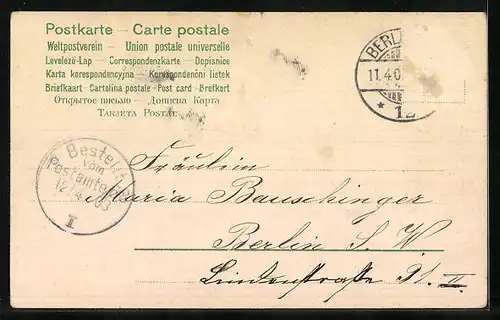 Postkarte - Carte postale
Weltpostverein - Union postale universelle
Levelező-Lap - Correspondenzkarte - Dopisnice
Karta korespondancyjna - Korespondenční lístek
Briefkaart - Cartolina postale - Post card - Brefkort
Открытое письмо - Дописна Карта
TARJETA POSTAL
BERL
11.4.0
* 12
Bestellt
vom
Postamte
12.4.03
1
Fräulein
Maria Bauschinger
Berlin S. W.
Lindenstraße 91. II.